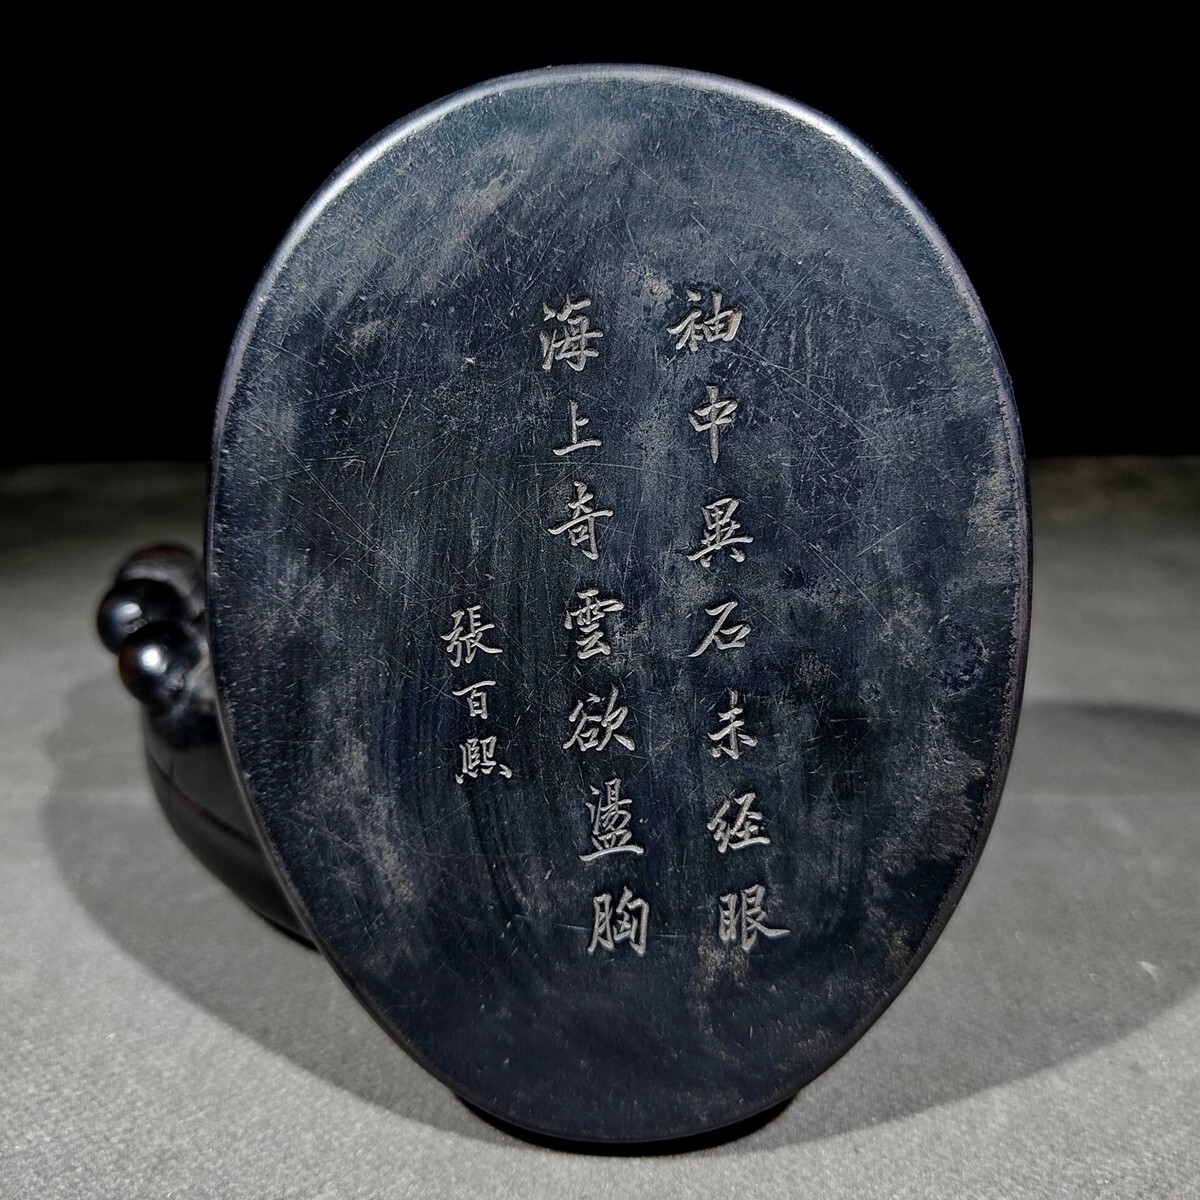 袖中異石未经眼
海上奇雲欲盪胸
張百熙